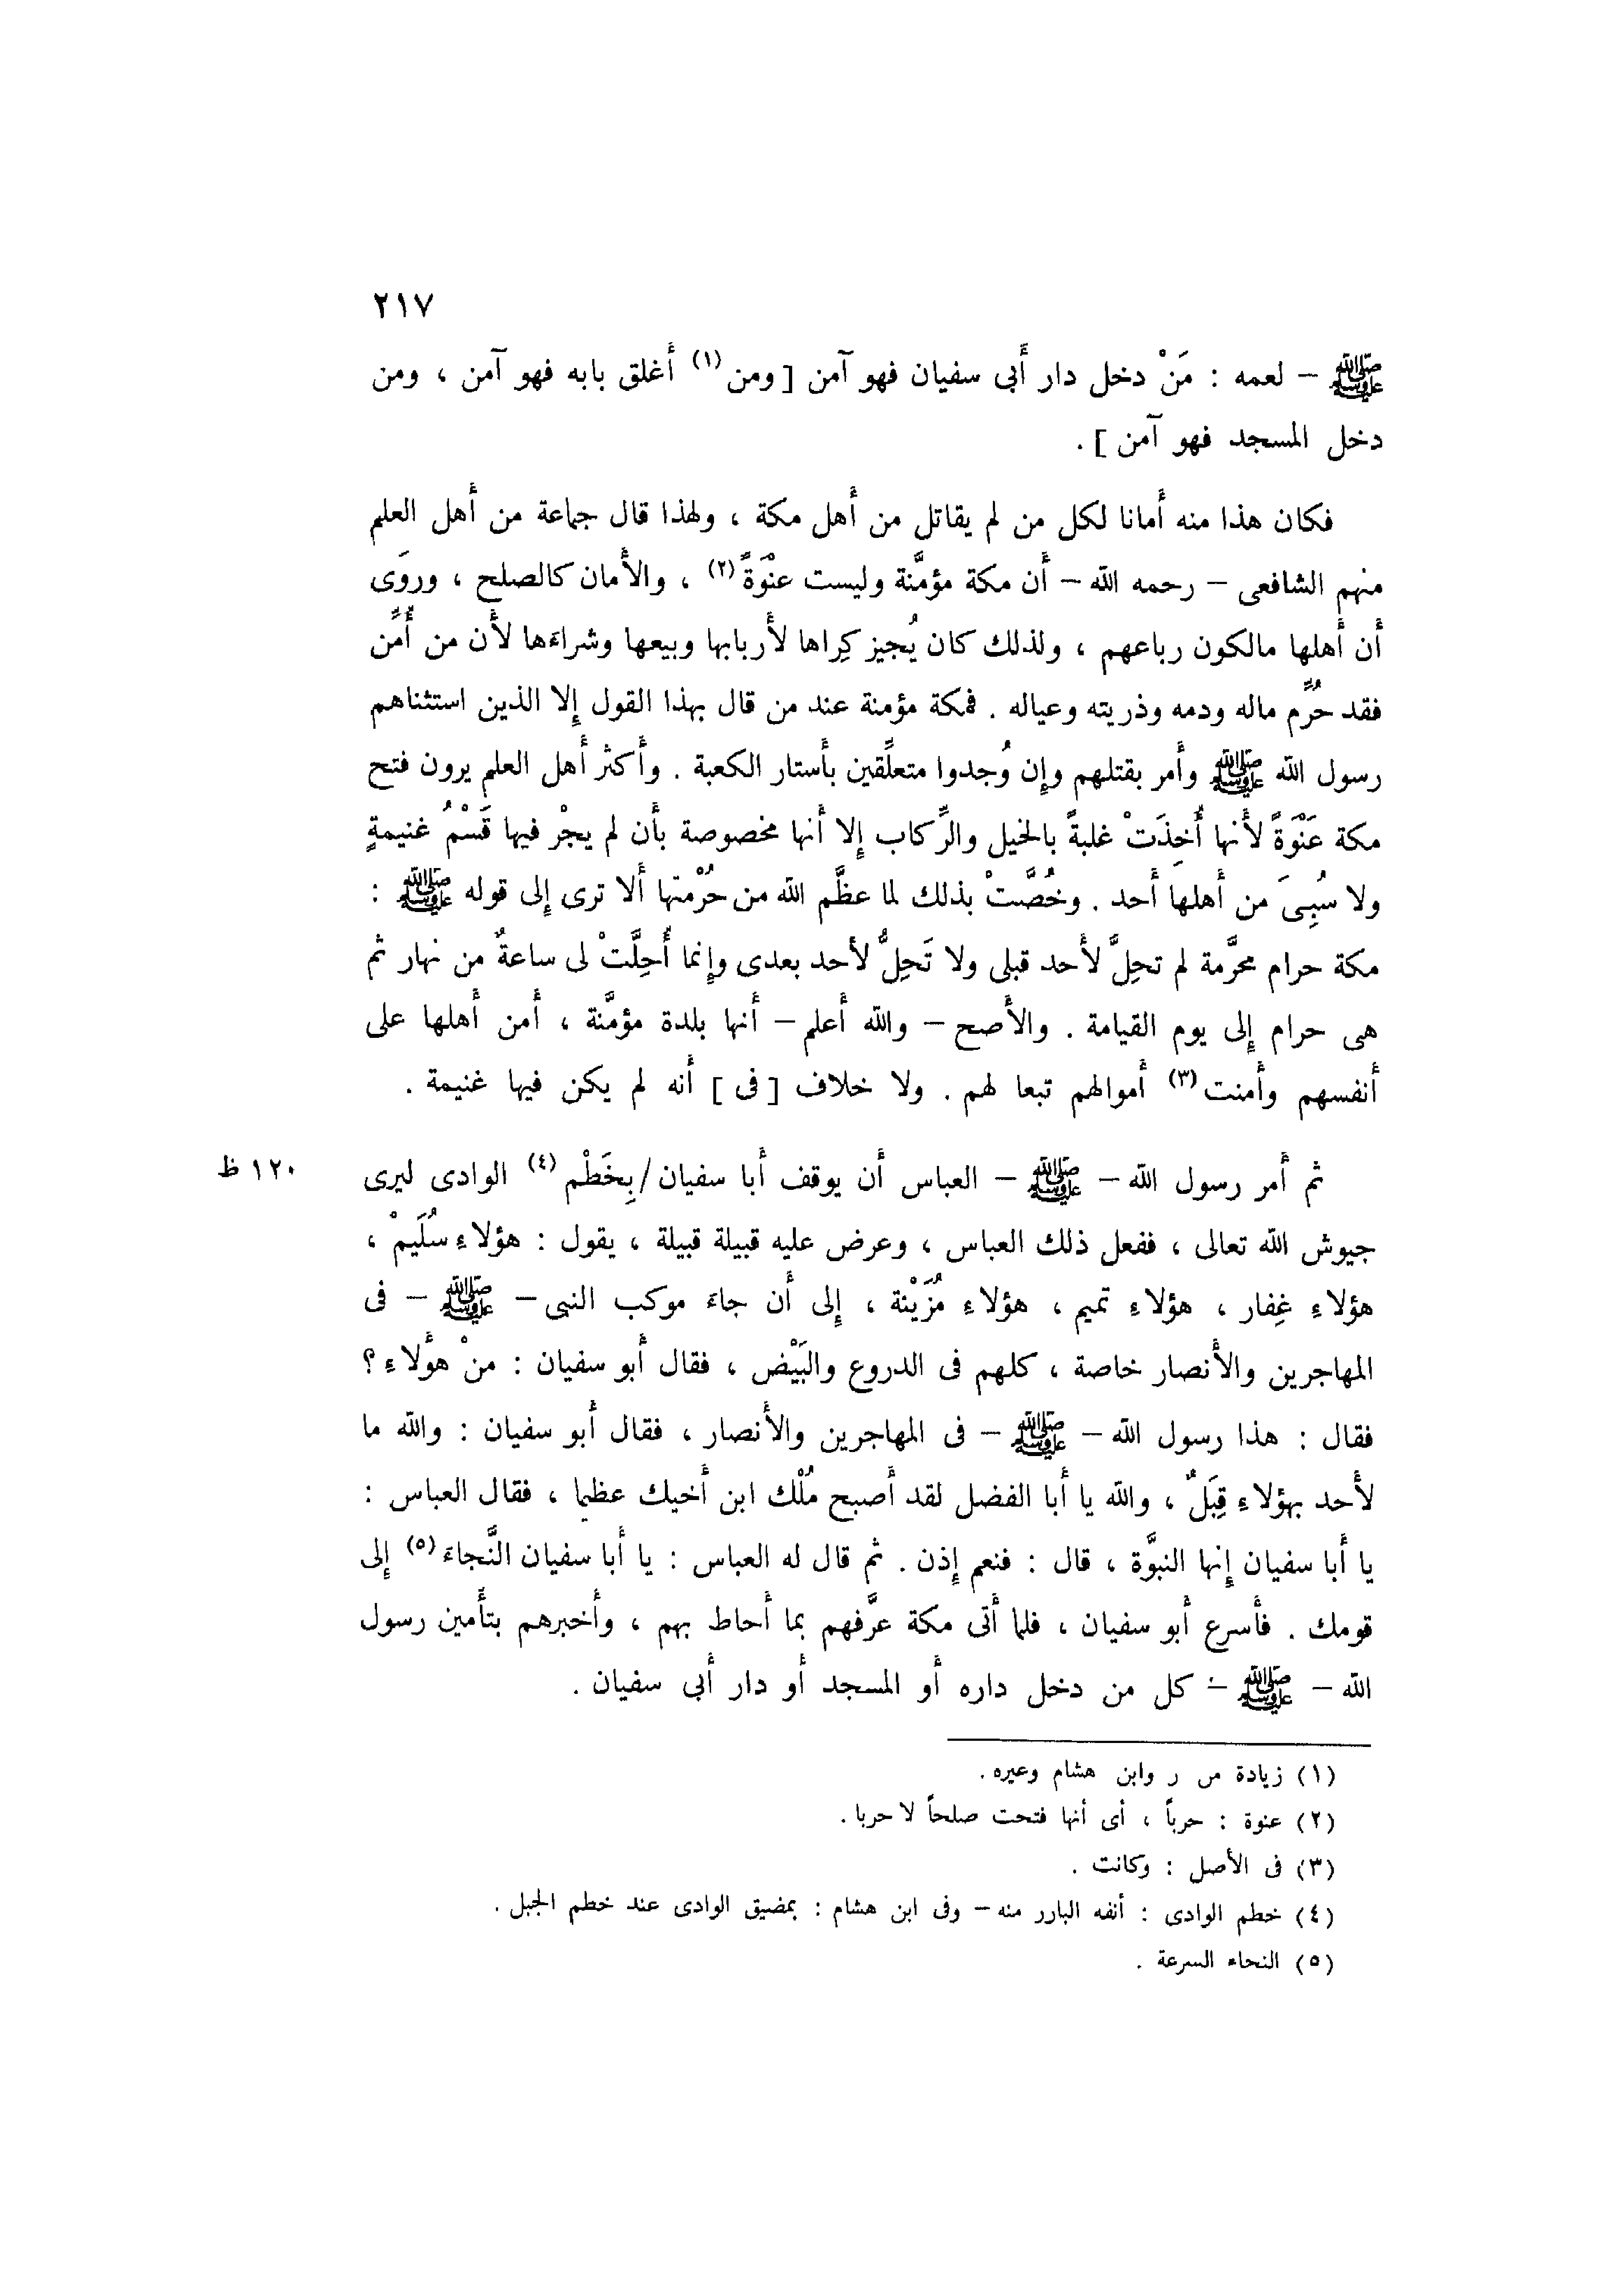 ٢١٧
ﷺ – لعمه : مَنْ دخل دار أَبى سفيان فهو آمن [ ومن (١) أَغلق بابه فهو آمن ، ومن
دخل المسجد فهو آمن ] .
فكان هذا منه أَمانا لكل من لم يقاتل من أَهل مكة ، ولهذا قال جماعة من أَهل العلم
منهم الشافعى – رحمه الله – أَن مكة مؤمَّنة وليست عنْوَةً (٢) ، والأَمان كالصلح ، وروَى
أَن أَهلها مالكون رباعهم ، ولذلك كان يُجيز كِراها لأَربابها وبيعها وشراءَها لأَن من أُمِّن
فقد حُرِّم ماله ودمه وذريته وعياله . فمكة مؤمنة عند من قال بهذا القول إِلا الذين استثناهم
رسول الله ﷺ وأَمر بقتلهم وإِن وُجدوا متعلِّقين بأَستار الكعبة . وأَكثر أَهل العلم يرون فتح
مكة عَنْوَةً لأَنها أُخِذَتْ غلبةً بالخيل والرِّكاب إِلا أَنها مخصوصة بأَن لم يجْر فيها قَسْمُ غنيمةٍ
ولا سُبِىَ من أَهلها أَحد . وخُصَّتْ بذلك لما عظَّم الله من حُرْمتها أَلا ترى إِلى قوله ﷺ :
مكة حرام محرَّمة لم تحِلَّ لأَحد قبلى ولا تَحِلُّ لأحد بعدى وإِنما أُحِلَّتْ لى ساعةٌ من نهار ثم
هى حرام إِلى يوم القيامة . والأَصح – والله أَعلم – أَنها بلدة مؤمَّنة ، أَمن أَهلها على
أَنفسهم وأَمنت (٣) أَموالهم تبعا لهم . ولا خلاف [ فى ] أَنه لم يكن فيها غنيمة .
ثم أَمر رسول الله – ﷺ – العباس أَن يوقف أَبا سفيان / بِخَطْم (٤) الوادى ليرى
١٢٠ ظ
جيوش الله تعالى ، ففعل ذلك العباس ، وعرض عليه قبيلة قبيلة ، يقول : هؤلاءِ سُلَيمْ ،
هؤلاءِ غِفار ، هؤلاءِ تميم ، هؤلاءِ مُزَيْنة ، إِلى أَن جاءَ موكب النبى – ﷺ – فى
المهاجرين والأَنصار خاصة ، كلهم فى الدروع والبَيْض ، فقال أَبو سفيان : منْ هؤَلاءِ ؟
فقال : هذا رسول الله – ﷺ – فى المهاجرين والأَنصار ، فقال أَبو سفيان : والله ما
لأَحد بهؤلاءِ قِبَلٌ ، والله يا أَبا الفضل لقد أَصبح مُلْك ابن أَخيك عظيما ، فقال العباس :
يا أَبا سفيان إِنها النبوَّة ، قال : فنعم إِذن . ثم قال له العباس : يا أَبا سفيان النَّجاءَ (٥) إِلى
قومك . فأَسرع أَبو سفيان ، فلما أَتى مكة عرَّفهم بما أَحاط بهم ، وأَخبرهم بتأَمين رسول
الله – ﷺ – كل من دخل داره أَو المسجد أَو دار أَبى سفيان .
(١) زيادة من ر وابن هشام وغيره .
(٢) عنوة : حرباً ، أى أنها فتحت صلحاً لا حربا .
(٣) فى الأصل : وكانت .
(٤) خطم الوادى : أنفه البارز منه – وفى ابن هشام : بمضيق الوادى عند خطم الجبل .
(٥) النجاء السرعة .